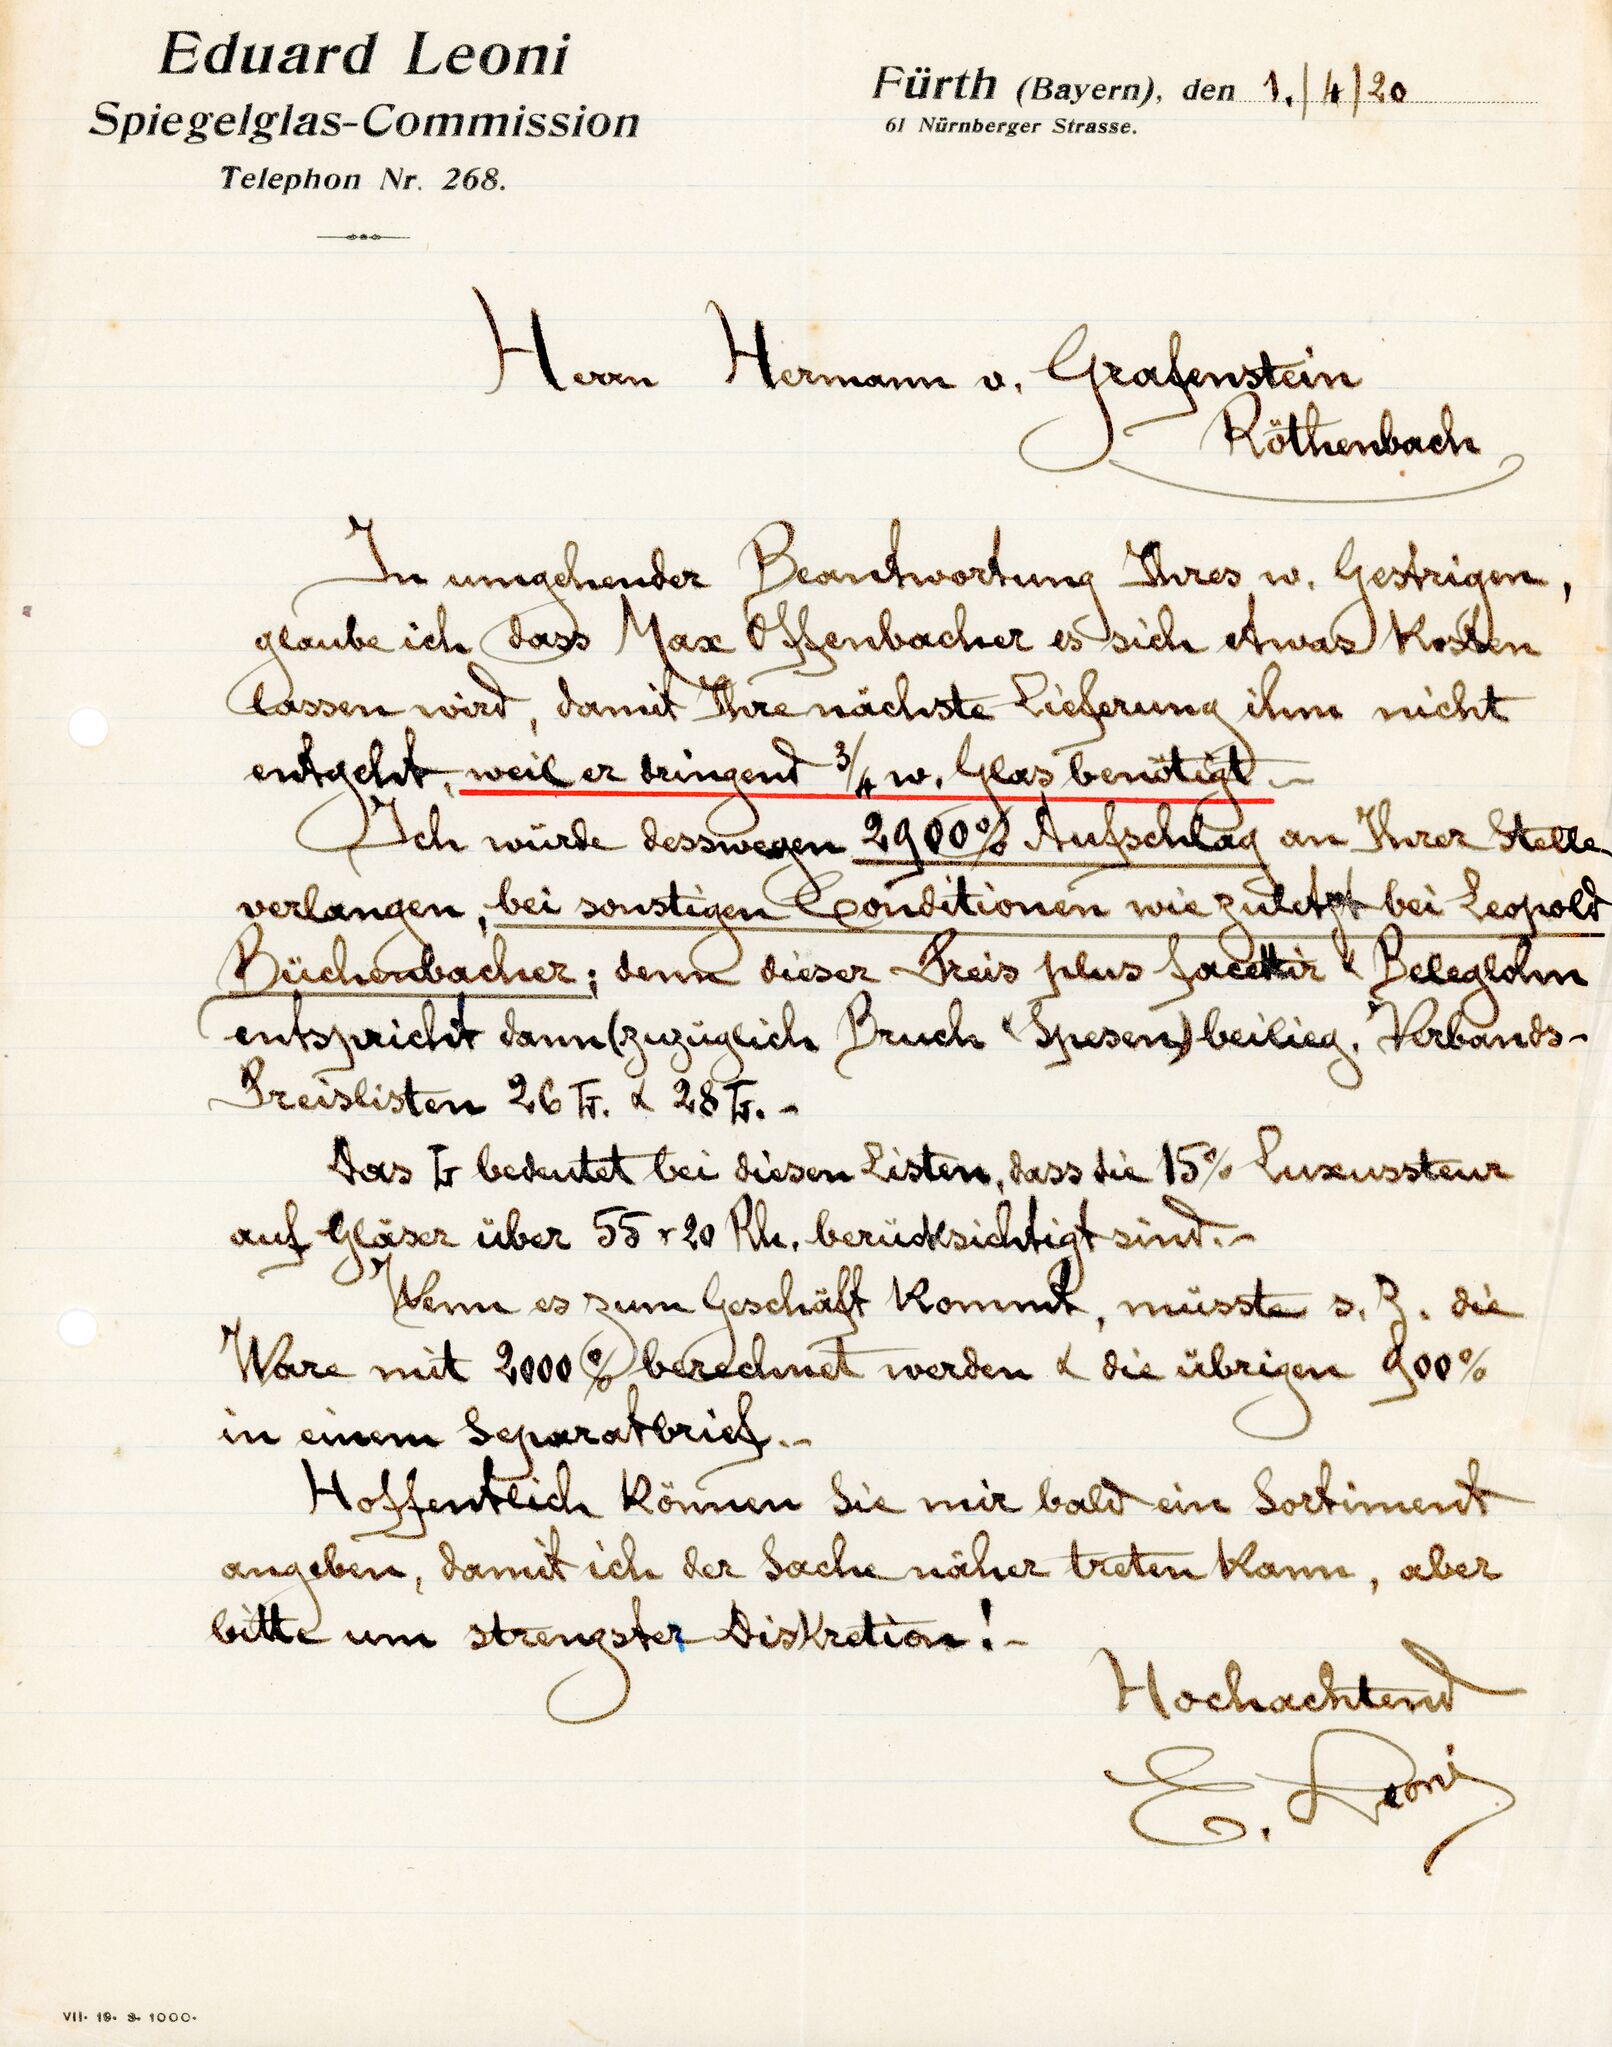 Eduard Leoni
Spiegelglas-Commission
Telephon Nr. 268.
Fürth (Bayern), den 1./4/20
61 Nürnberger Strasse.
Herrn Hermann v. Grafenstein
Röthenbach
In umgehender Beantwortung Ihres w. Gestrigen,
glaube ich dass Max Offenbacher es sich etwas kosten
lassen wird, damit Ihre nächste Lieferung ihm nicht
entgeht, weil er dringend 3/4 w. Glas benötigt.-
Ich würde desswegen 2900% Aufschlag an Ihrer Stelle
verlangen, bei sonstigen Conditionen wie zuletzt bei Leopold
Büchenbacher; denn dieser Preis plus facettir & Beleglohn
entspricht dann (zuzüglich Bruch & Spesen) beilieg. Verbands-
Preislisten 26 Lr. & 28 Lr.-
Das Lr bedeutet bei diesen Listen, dass die 15% Luxussteur
auf Gläser über 55 + 20 Rh. berücksichtigt sind.-
Wenn es zum Geschäft kommt, müsste s. Z. die
Ware mit 2000% berechnet werden & die übrigen 900%
in einem Separatbrief.-
Hoffentlich können Sie mir bald ein Sortiment
angeben, damit ich der Sache näher treten kann, aber
bitte um strengster Diskretion!-
Hochachtend
E. Leoni
VII. 19. 1000.